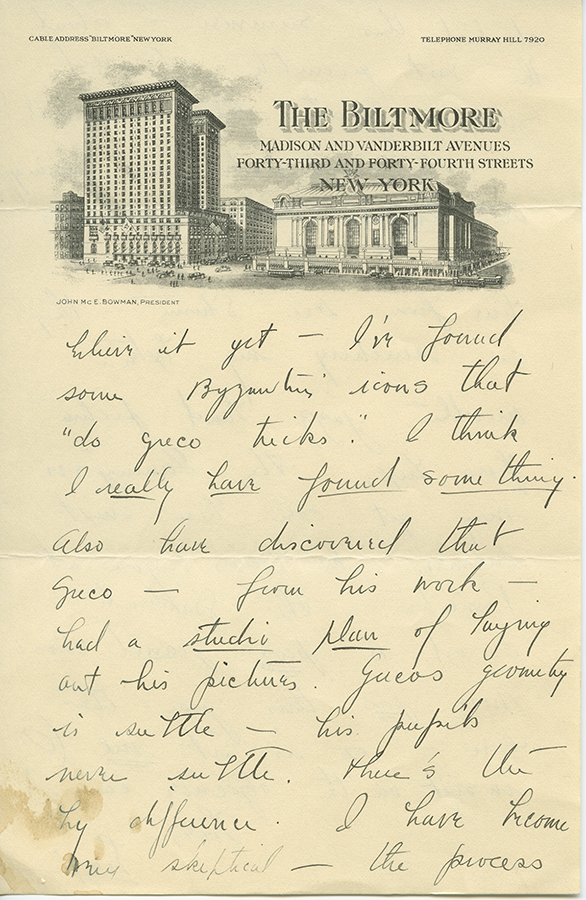 CABLE ADDRESS "BILTMORE" NEW YORK
TELEPHONE MURRAY HILL 7920
THE BILTMORE
MADISON AND VANDERBILT AVENUES
FORTY-THIRD AND FORTY-FOURTH STREETS
NEW YORK
JOHN McE. BOWMAN, PRESIDENT
it yet — I've found
some Byzantine icons that
"do Greco tricks." I think
I really have found something.
Also have discovered that
Greco — from his work —
had a studio plan of laying
out his pictures. Grecos geometry
is suttle — his pupils
never suttle. There's the
difference. I have become
very skeptical — the process